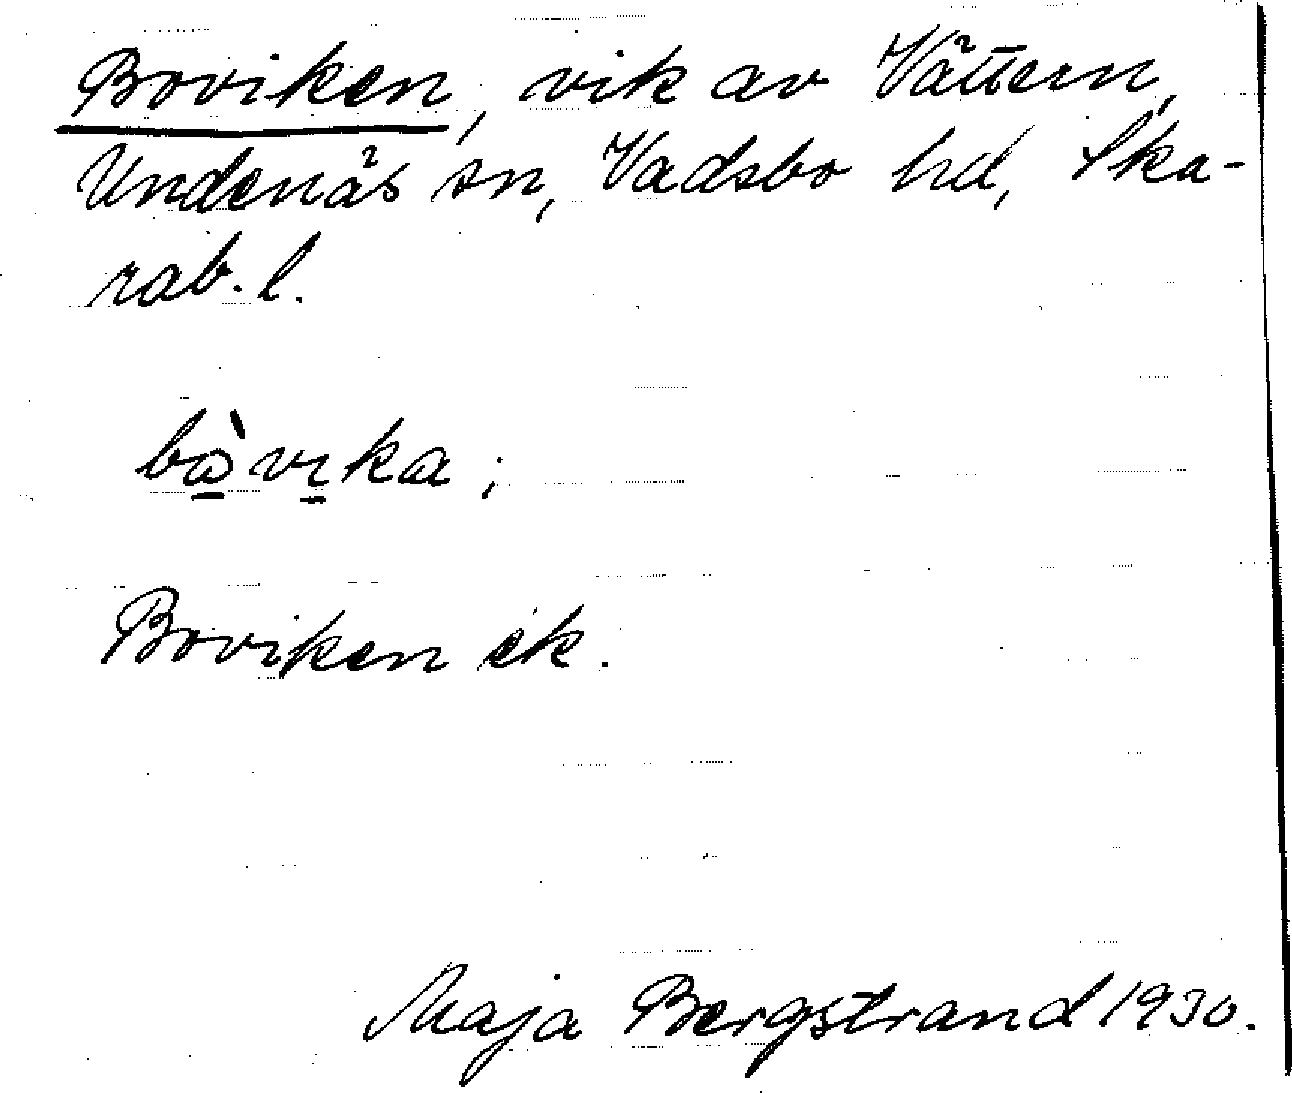 Boviken, vik av Vättern,
Undenäs sn, Vadsbo hd, Ska-
rab. l.
bà̱vı̱ka;
Boviken ek.
Maja Bergstrand 1930.